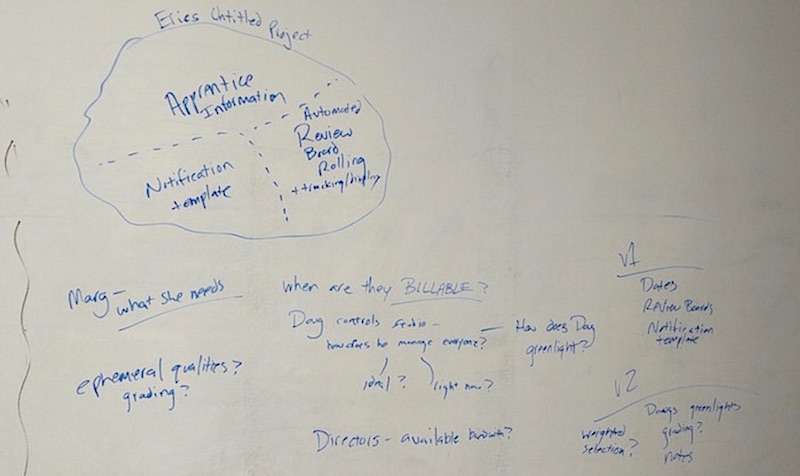 Erics Untitled
Project
Apprentice
Information
Automated
Review
Board
Rolling
+ tracking/display
Notification
template
Marg - what she needs
ephemeral qualities?
grading?
When are they BILLABLE?
Doug controls studio -
how does he manage everyone?
ideal?
right now?
How does Doug
greenlight?
Directors - available bandwidth?
V1
Dates
Review Boards
Notification
template
V2
weighted
selection?
Dougs greenlights
grading?
notes